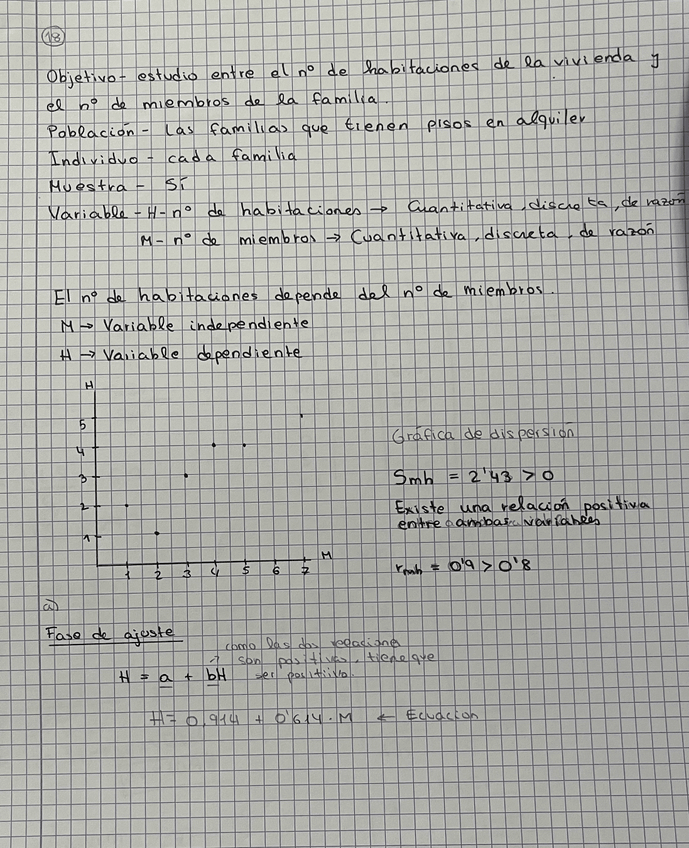 18
Objetivo - estudio entre el nº de habitaciones de la vivienda y
el nº de miembros de la familia.
Población - Las familias que tienen pisos en alquiler
Individuo - cada familia
Muestra - Sí
Variable - H - nº de habitaciones → Cuantitativa, discreta, de razón
M - nº de miembros → Cuantitativa, discreta, de razón
El nº de habitaciones depende del nº de miembros.
M → Variable independiente
H → Variable dependiente
H
5
4
3
2
1
1 2 3 4 5 6 7
M
Gráfica de dispersión
Smh = 2'43 > 0
Existe una relación positiva
entre ambas variables
rmh = 0'9 > 0'8
a)
Fase de ajuste
como las dos relaciones
son positivas, tiene que
ser positiivo.
H = a + bH
H = 0,914 + 0'614 · M ← Ecuación